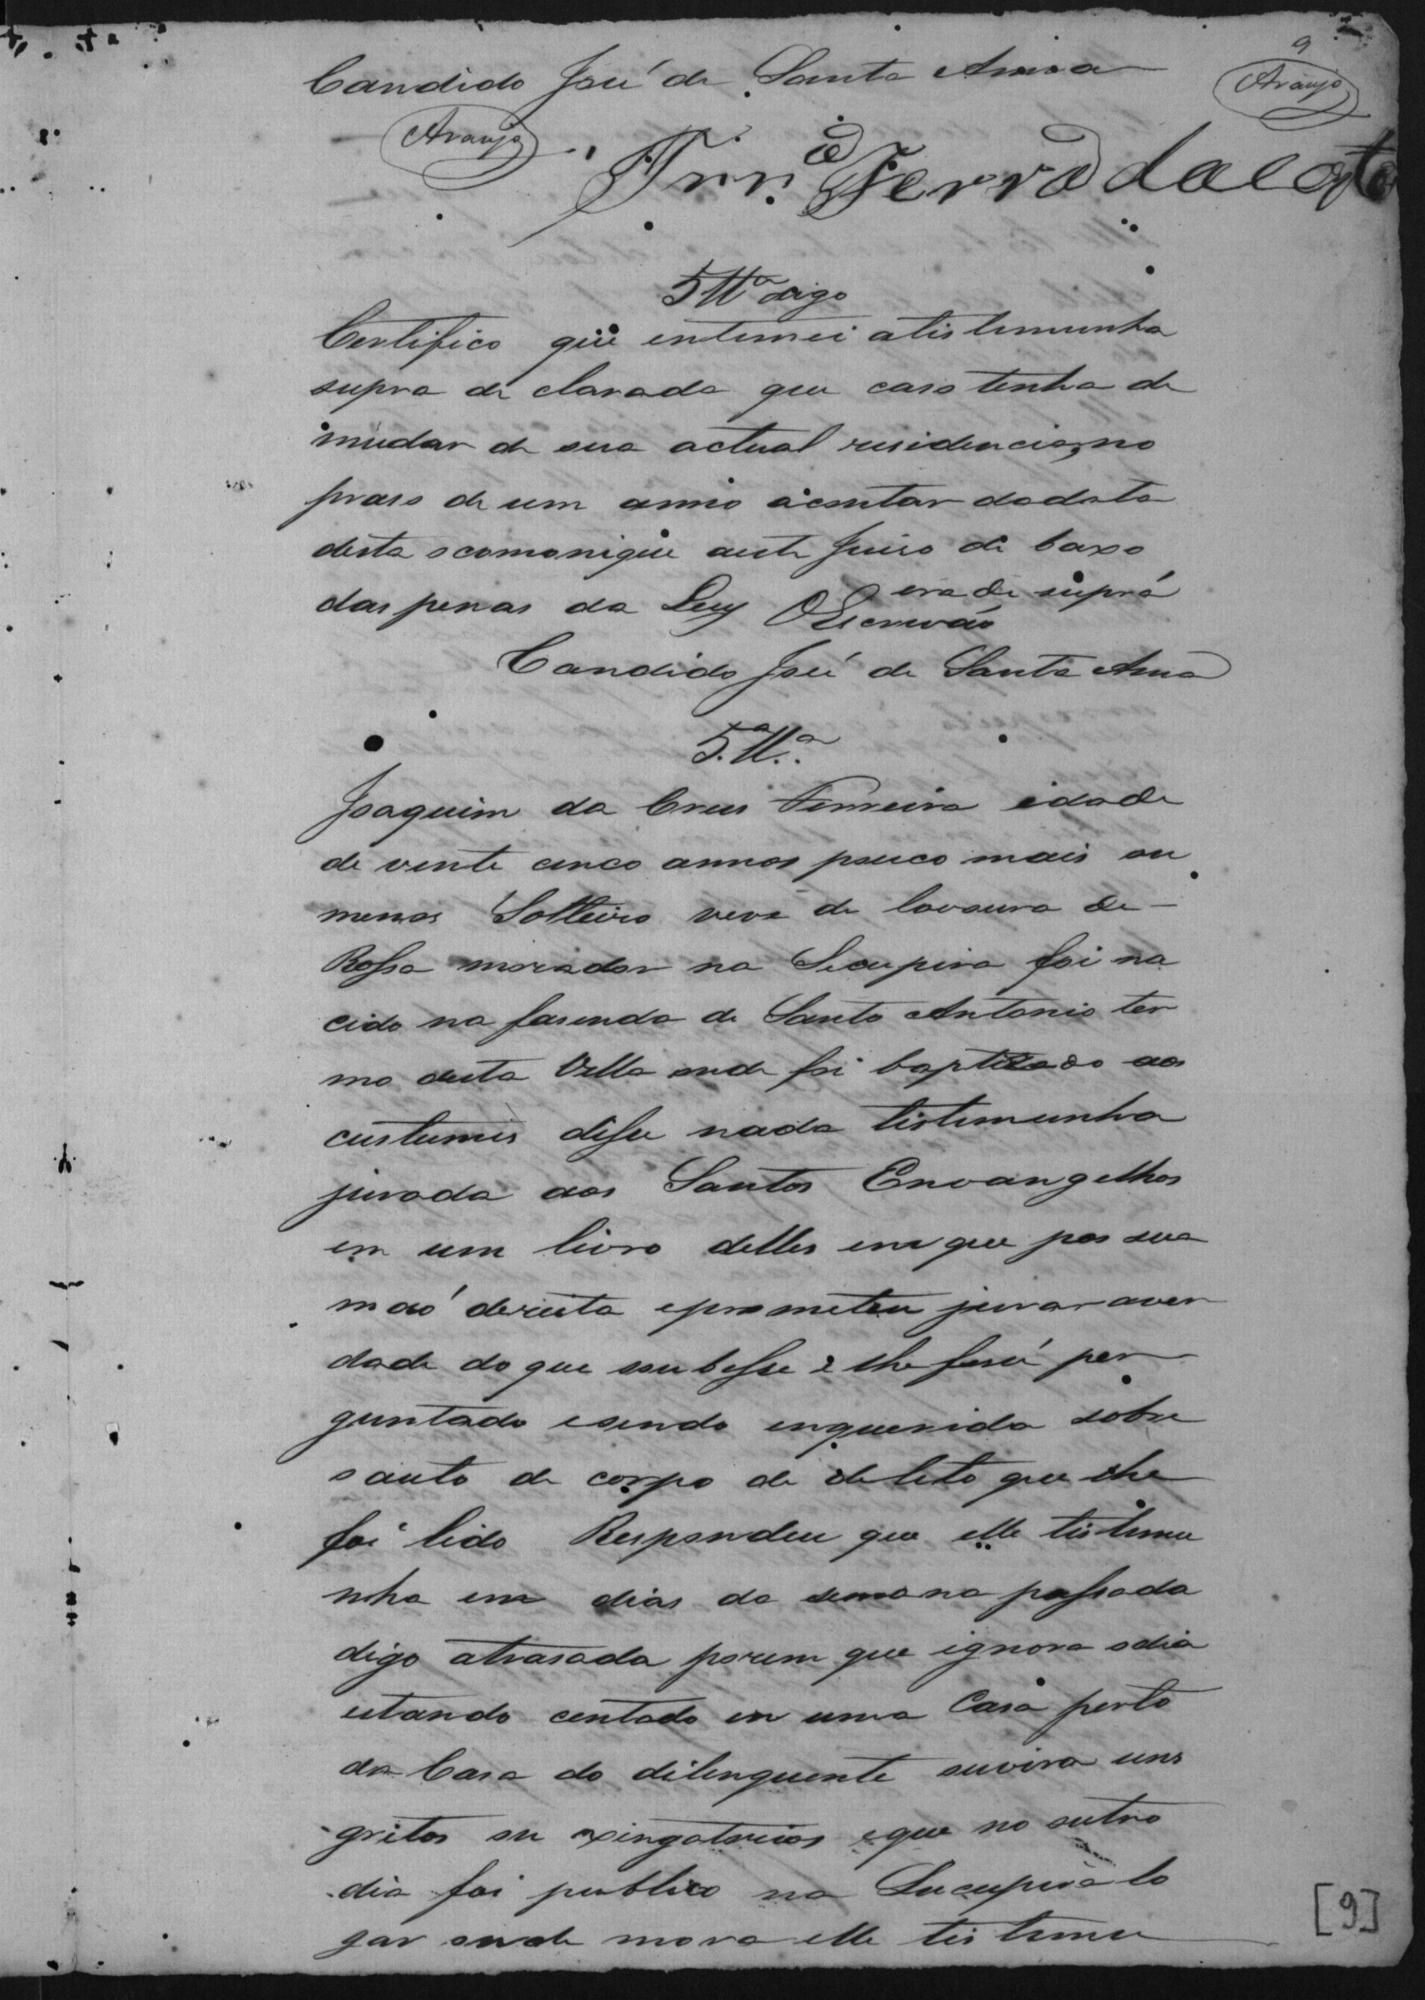 9
Candido José de Santa Anna
Araujo
Araujo
Ferra da Costa
5 Ttª digo
Certifico que entimei atistimunha
supra de clarada que caso tenha de
mudar de sua actual residencia, no
praso de um anno acontar dadata
desta o comonique aeste Juiso di baxo
das penas da Ley era di supra
OEscrivão
Candido José de Santa Anna
5.ª Tt.ª
Joaquim da Crus Ferreira idade
de vente cinco annos pouco mais ou
menos Solteiro veve de lavoura de
Rossa morador na Sucupira foi na
cido na fasenda de Santo Antonio ter
mo desta Villa onde foi baptizado aos
custumes disse nada tistimunha
jurada aos Santos Envangelhos
em um livro delles em que pos sua
maó dereita eprometeu jurar aver
dade do que ssubesse e lhe fosse per
guntado esendo enquerida sobre
oauto de corpo de deleto que lhe
foi lido Respondeu que elle tistimu
nha em dias da semana passada
digo atrasada porem que ignora odia
estando centado em uma Casa perto
da Casa do dilenquente ouvira uns
gritos ou xingatorios eque no outro
dia foi publico na Sucupira lo
gar onde mora elle tistimu
[9]